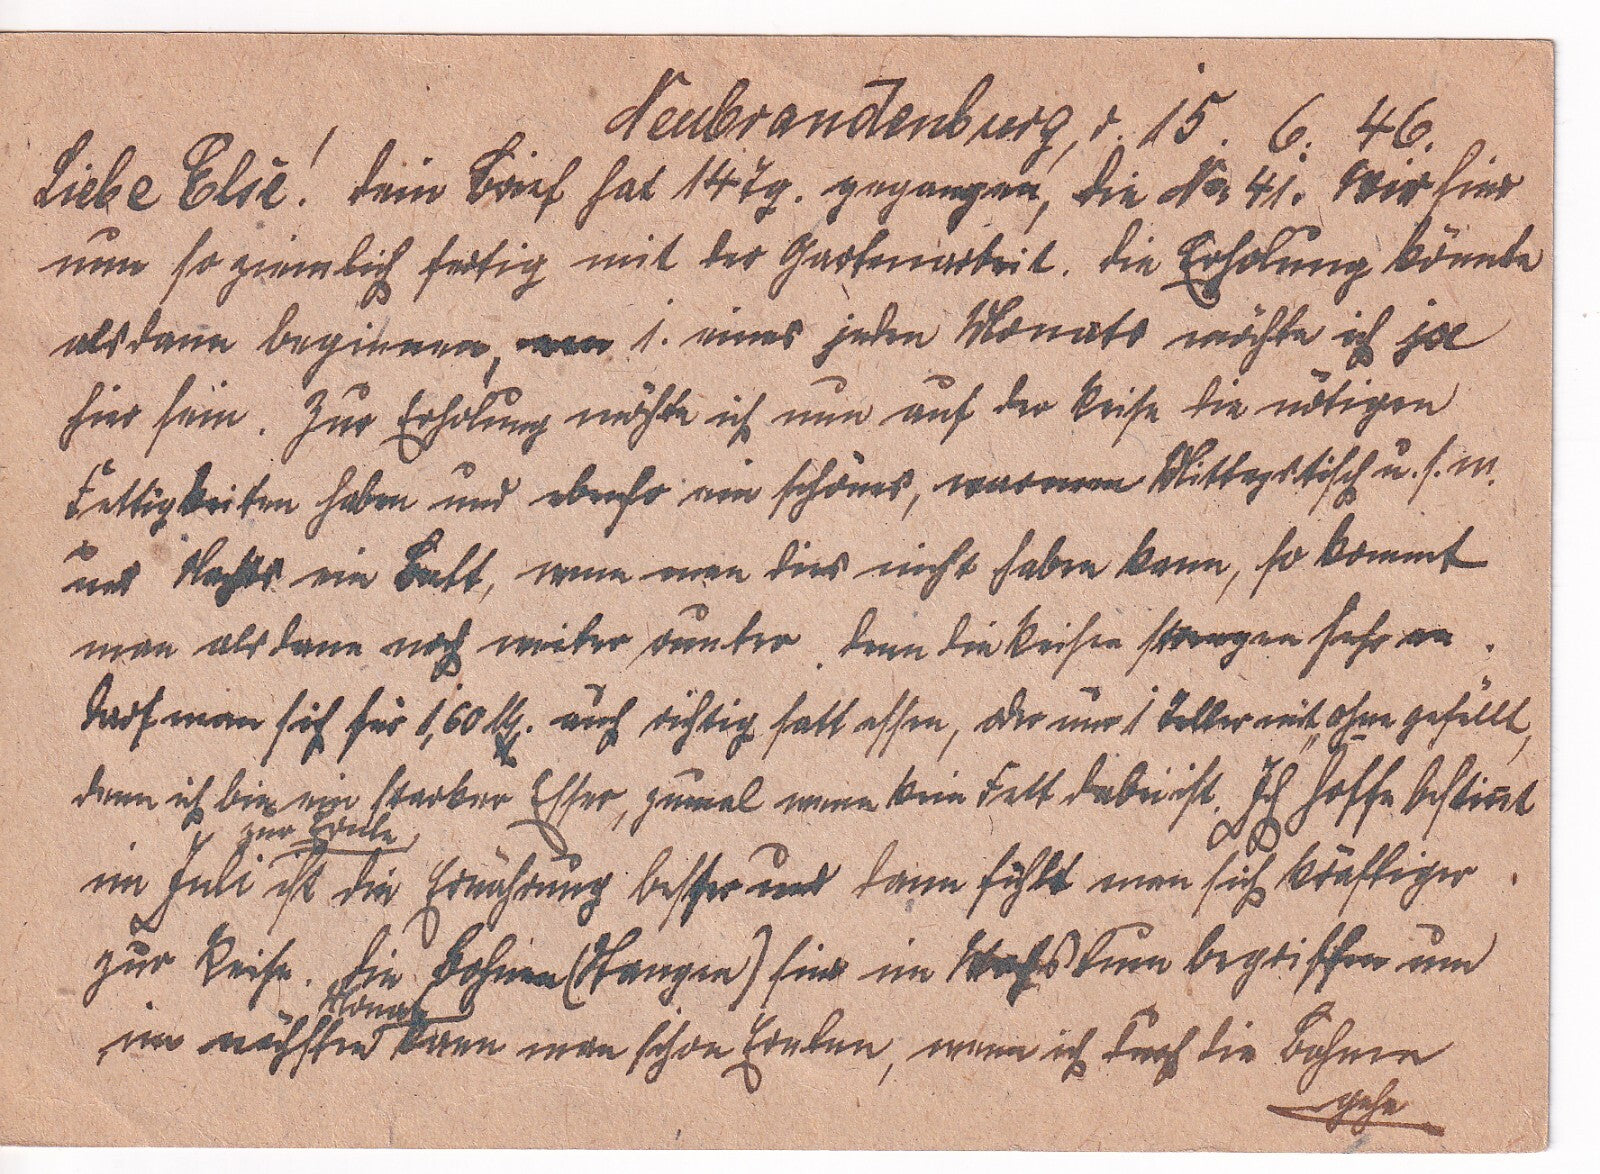 Neubrandenburg, d. 15. 6. 46.
Liebe Else! Dein Brief hat 14 Tg. gegangen, die No 41. Wir sind
nun so ziemlich fertig mit der Gartenarbeit. Die Erholung könnte
alsdann beginnen, 1. eines jeden Monats möchte ich ja
hier sein. Zur Erholung möchte ich nun auf der Reise die nötigen
Fettigkeiten haben und ebenso ein schönes, warmen Mittagstisch u. s. w.
und Nachts ein Bett, wenn man dies nicht haben kann, so kommt
man alsdann noch weiter runter. Denn die Reisen strengen sehr an.
Darf man sich für 1,60 M. auch richtig satt essen, oder nur 1 Teller mit „ohne gefüllt,
denn ich bin ein starker Esser, zumal wenn kein Fett dabei ist. Ich hoffe bestimmt
zur Ernte
im Juli ist die Ernährung besser und dann fühlt man sich kräftiger
zur Reise. Die Bohnen (Stangen) sind im Wachstum begriffen und
Monat
im nächsten kann man schon Ernten, wenn ich durch die Bohnen
gehe